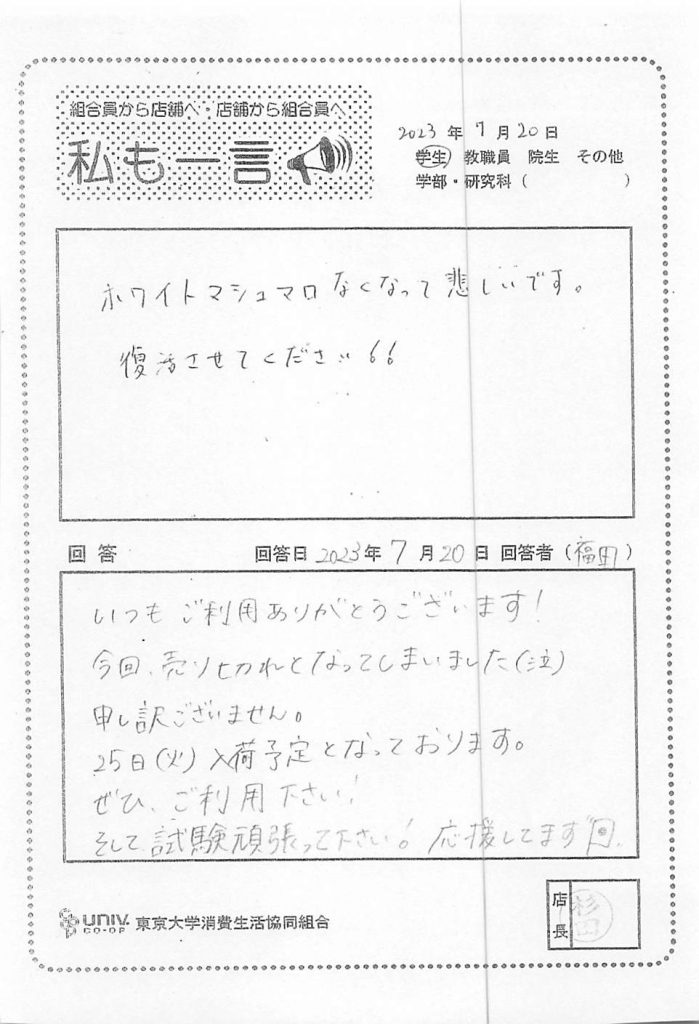 組合員から店舗へ・店舗から組合員へ
私も一言
2023年7月20日
学生 教職員 院生 その他
学部・研究科( )
ホワイトマシュマロなくなって悲しいです。
復活させてください
回答 回答日2023年7月20日 回答者(福田)
いつもご利用ありがとうございます!
今回、売り切れとなってしまいました(泣)
申し訳ございません。
25日(火)入荷予定となっております。
ぜひ、ご利用下さい!
そして、試験頑張って下さい! 応援してます
UNIV. CO-OP 東京大学消費生活協同組合
店長 杉田